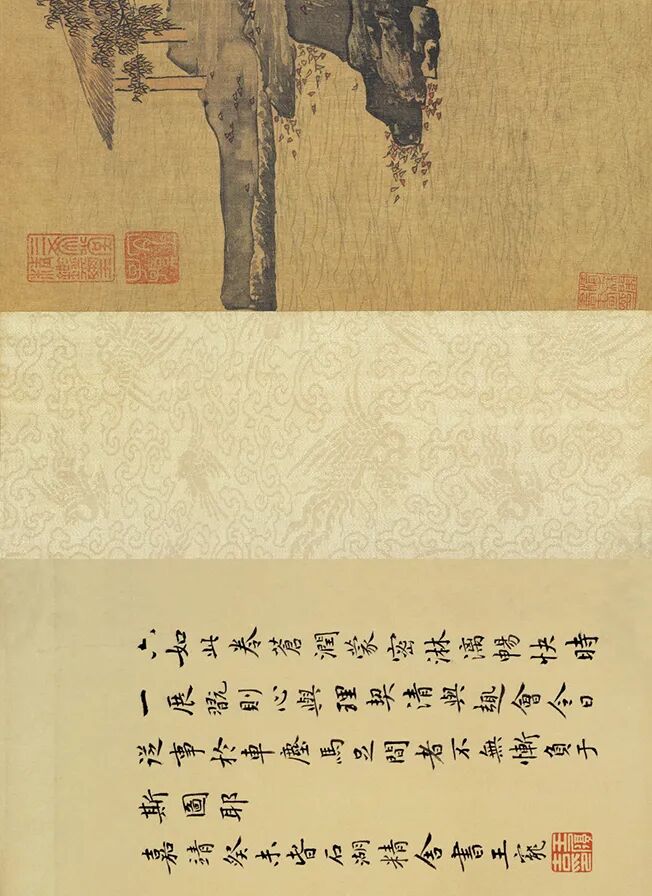 三希堂精鑑璽
宜子孫
六如此卷蒼潤蒙密淋漓暢快時
一展翫則心與理契清與趣會今日
從事於車塵馬足間者不無慚負于
斯圖耶
嘉靖癸未旹石湖精舍書王寵